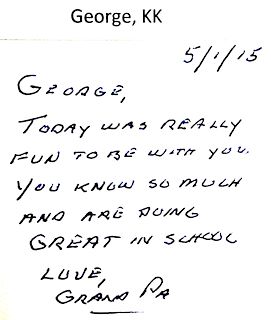 George, KK
5/1/15
GEORGE,
TODAY WAS REALLY
FUN TO BE WITH YOU.
YOU KNOW SO MUCH
AND ARE DOING
GREAT IN SCHOOL
LOVE,
GRAND PA